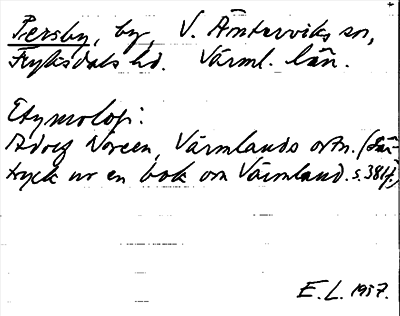 Persby, by, V. Ämtervíks sn,
Fryksdals hd. Värml. län.
Etymologi:
Adolf Noreen, Värmlands ortn. (Sär-
tryck ur en bok om Värmland. s. 381 f.)
E. L. 1957.